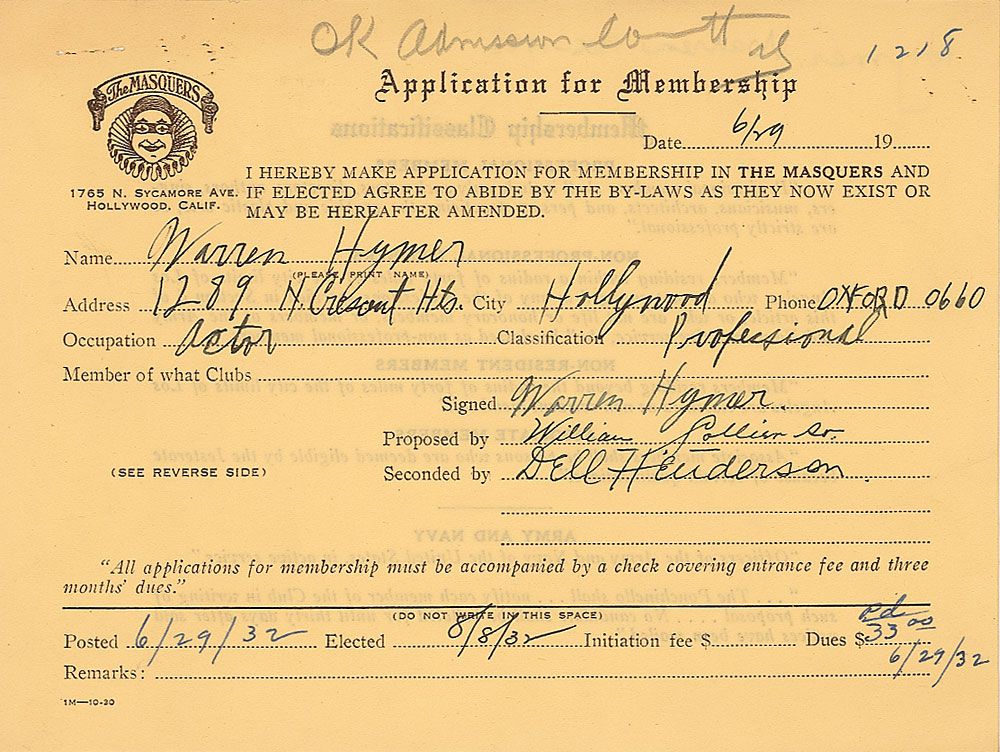 OK Admission Comtt
1218
Application for Membership
The MASQUERS
1765 N. Sycamore Ave.
Hollywood, Calif.
Date 6/29 19
I HEREBY MAKE APPLICATION FOR MEMBERSHIP IN THE MASQUERS AND
IF ELECTED AGREE TO ABIDE BY THE BY-LAWS AS THEY NOW EXIST OR
MAY BE HEREAFTER AMENDED.
Name Warren Hymer
(PLEASE PRINT NAME)
Address 1289 N. Cresent Hts. City Hollywood Phone OXFORD 0660
Occupation Actor Classification Professional
Member of what Clubs
Signed Warren Hymer.
Proposed by William Collier Sr.
(SEE REVERSE SIDE)
Seconded by Dell Henderson
"All applications for membership must be accompanied by a check covering entrance fee and three
months' dues."
(DO NOT WRITE IN THIS SPACE)
Posted 6/29/32 Elected 8/8/32 Initiation fee $ Dues $ Pd 33 00
6/29/32
Remarks:
1M—10-30